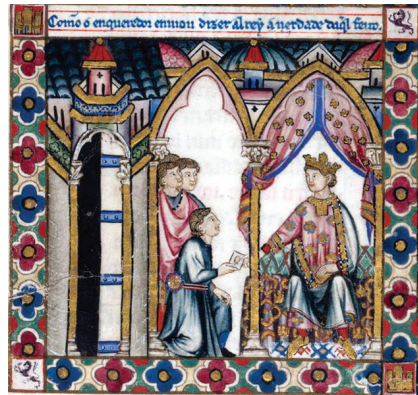 Como o enqueredor enuiou dizer al rey a uerdade daq̃l feito.